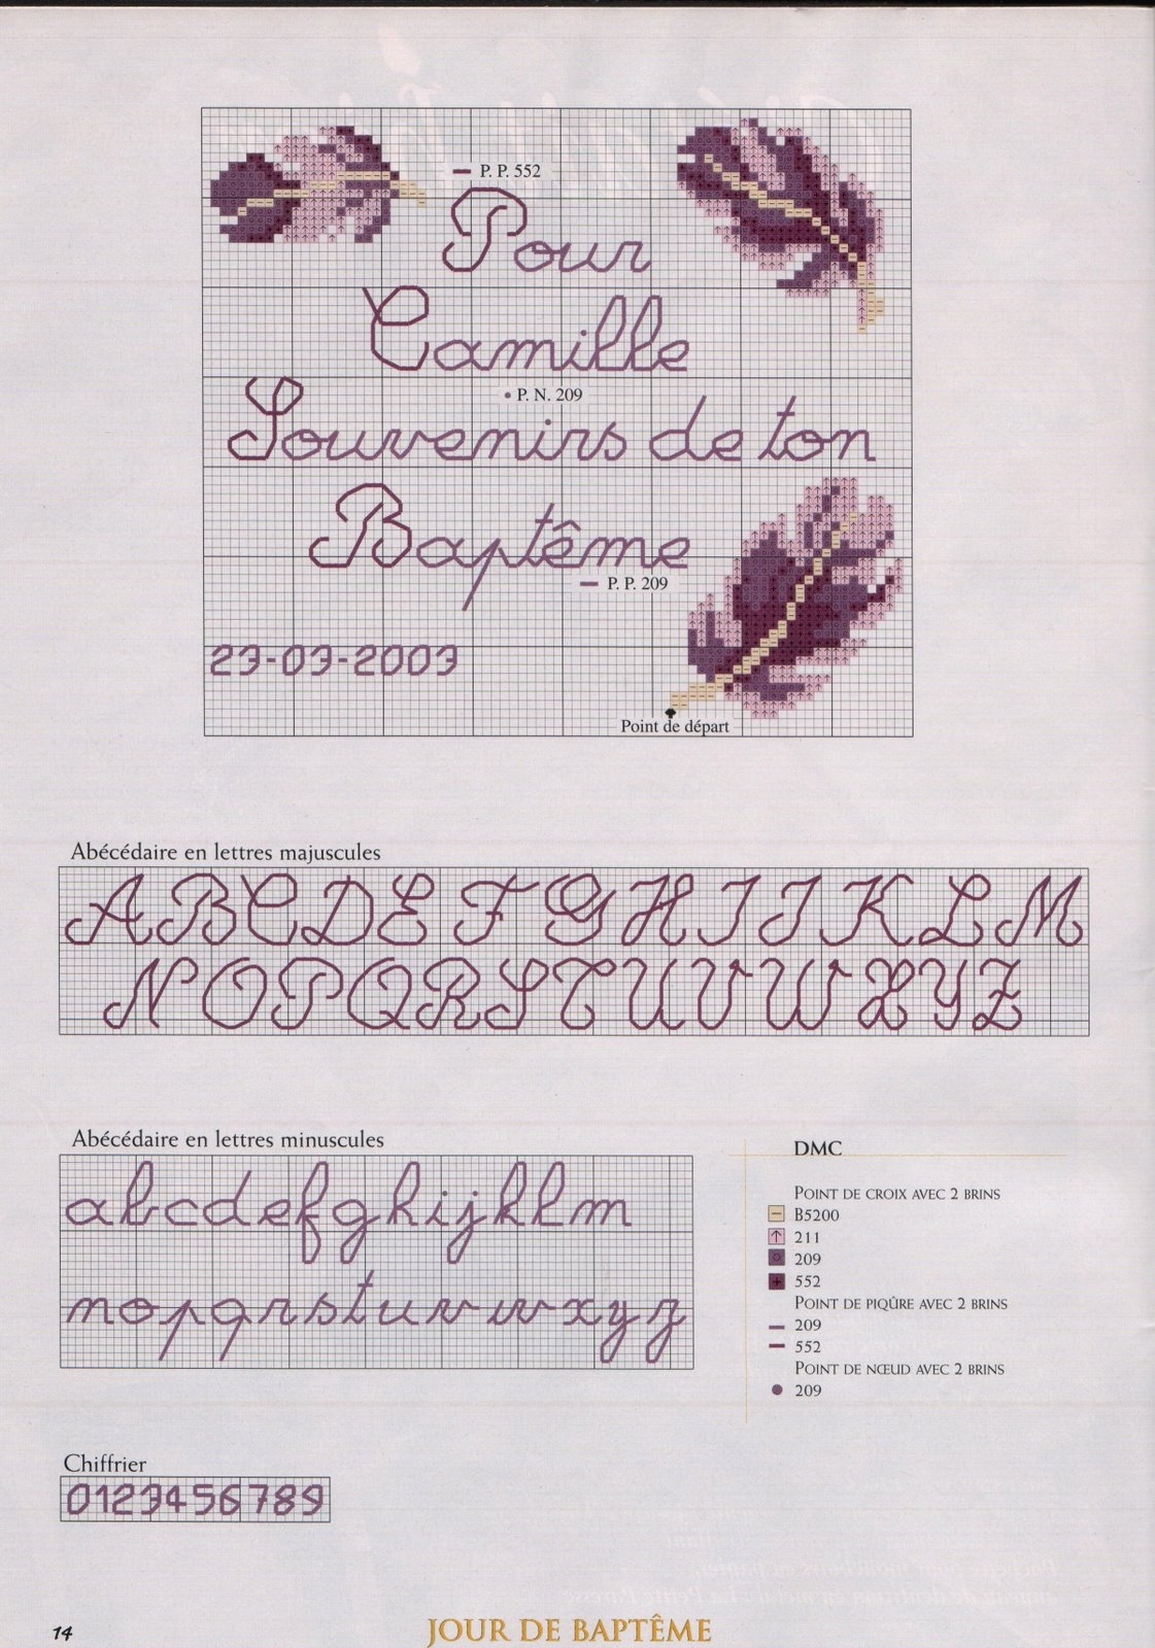 P. P. 552
Pour
Camille
P. N. 209
Souvenirs de ton
Baptême
P. P. 209
23-03-2003
Point de départ
Abécédaire en lettres majuscules
A B C D E F G H I J K L M
N O P Q R S T U V W X Y Z
Abécédaire en lettres minuscules
a b c d e f g h i j k l m
n o p q r s t u v w x y z
DMC
POINT DE CROIX AVEC 2 BRINS
B5200
211
209
552
POINT DE PIQÛRE AVEC 2 BRINS
209
552
POINT DE NŒUD AVEC 2 BRINS
209
Chiffrier
0123456789
14
JOUR DE BAPTÊME